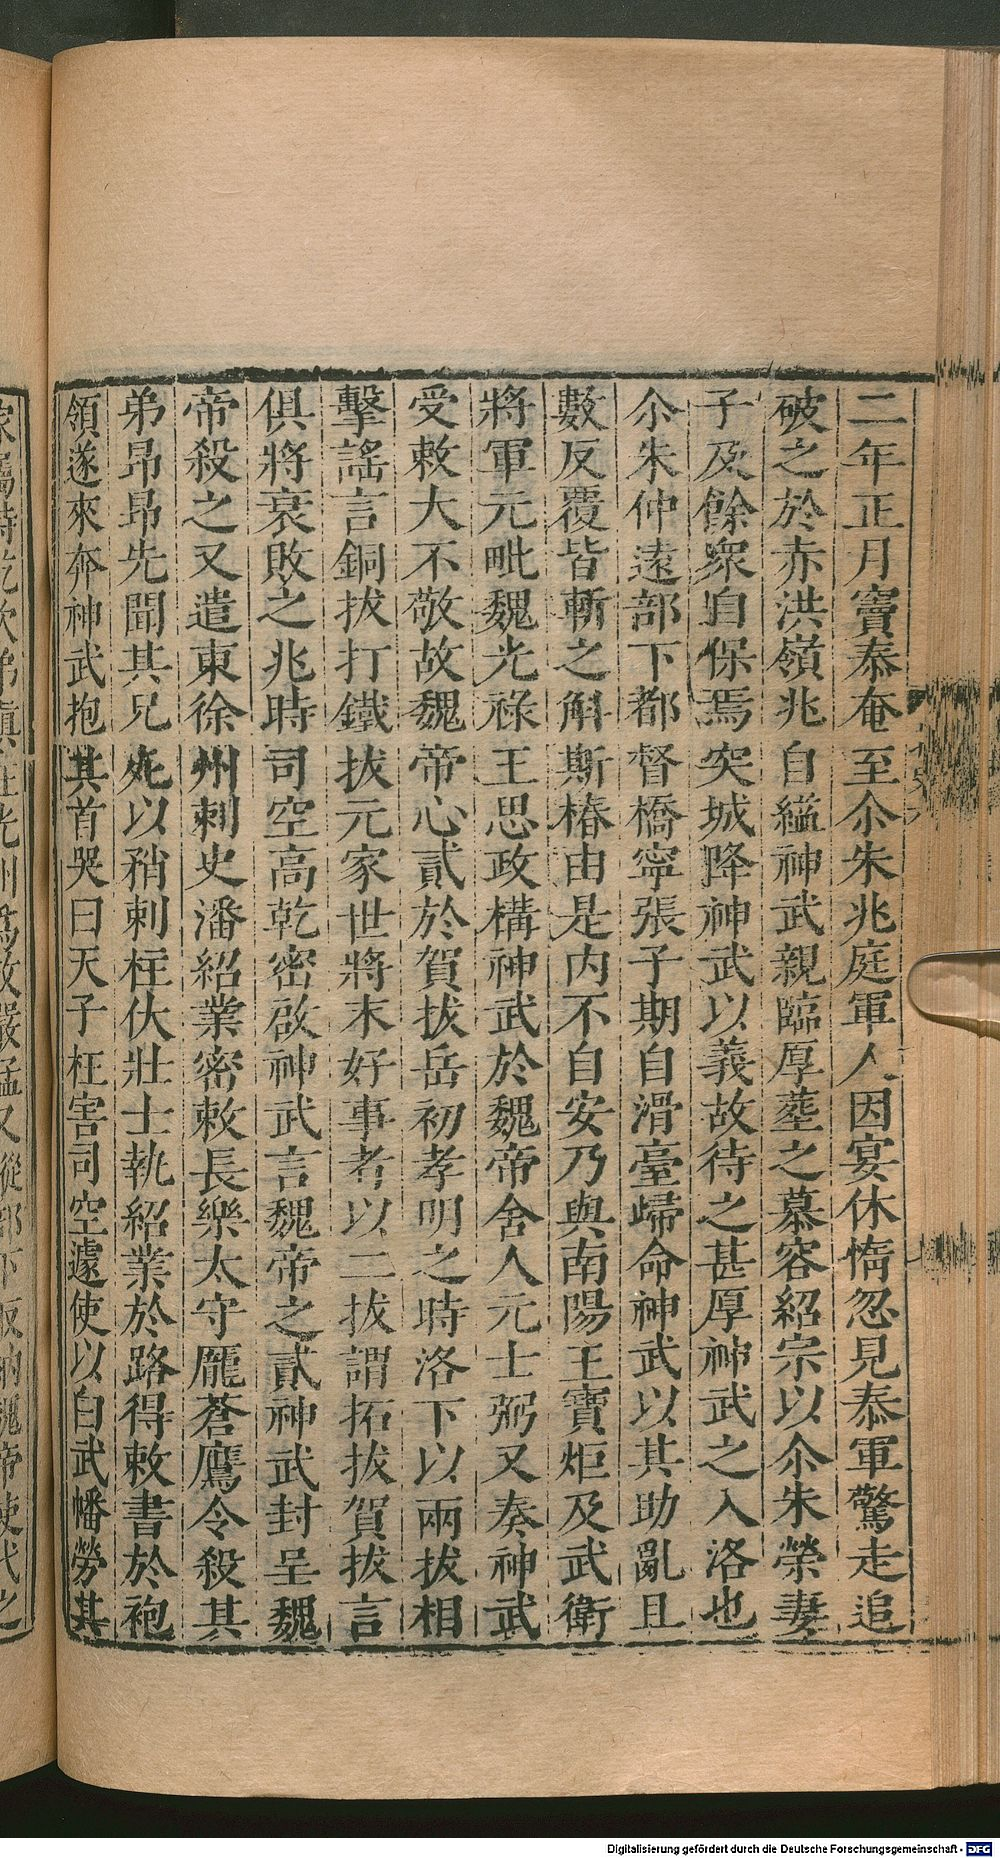 二年正月竇泰奄至尒朱兆庭軍人因宴休惰忽見泰軍驚走追
破之於赤洪嶺兆自縊神武親臨厚葬之慕容紹宗以尒朱榮妻
子及餘衆自保焉突城降神武以義故待之甚厚神武之入洛也
尒朱仲遠部下都督橋寧張子期自滑臺歸命神武以其助亂且
數反覆皆斬之斛斯椿由是内不自安乃與南陽王寶炬及武衛
將軍元毗魏光祿王思政構神武於魏帝舍人元士弼又奏神武
受敕大不敬故魏帝心貳於賀拔岳初孝明之時洛下以兩拔相
擊謠言銅拔打鐵拔元家世將末好事者以二拔謂拓拔賀拔言
俱將衰敗之兆時司空高乾密啟神武言魏帝之貳神武封呈魏
帝殺之又遣東徐州刺史潘紹業密敕長樂太守龐蒼鷹令殺其
弟昂昂先聞其兄死以矟刺柱伏壯士執紹業於路得敕書於袍
領遂來奔神武抱其首哭曰天子枉害司空遽使以白武幡勞其
Digitalisierung gefördert durch die Deutsche Forschungsgemeinschaft - DFG